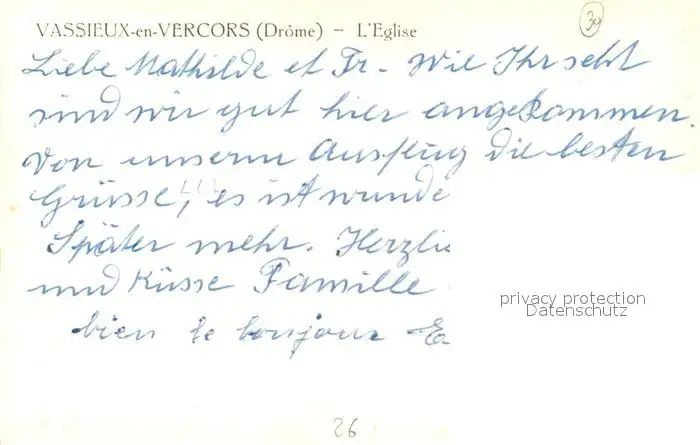 VASSIEUX-en-VERCORS (Drôme) – L'Eglise
39
Liebe Mathilde et Fr. - Wie Ihr seht
sind wir gut hier angekommen.
Von unserm Ausflug die besten
Grüsse, !!! es ist wunde
Später mehr. Herzli
und Küsse Famille
bien le bonjour E
privacy protection
Datenschutz
26